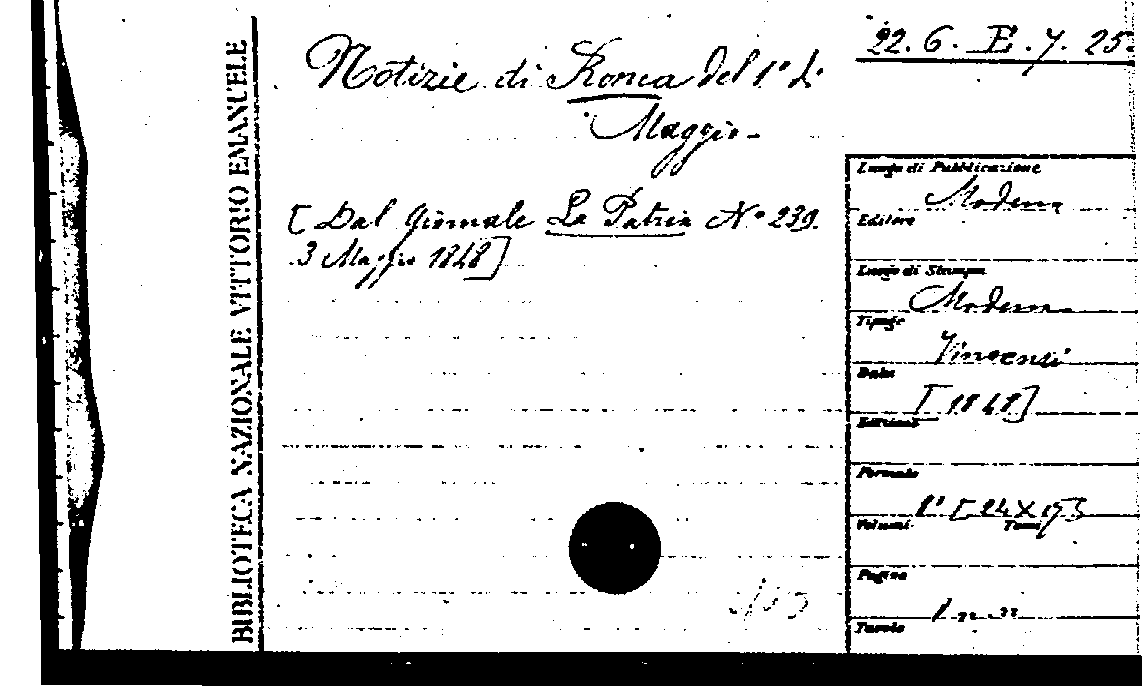 22. 6. E. 7. 25
Notizie di Roma del 1° di
Maggio
[Dal Giornale La Patria N° 239.
3 Maggio 1848]
BIBLIOTECA NAZIONALE VITTORIO EMANUELE
Luogo di Pubblicazione
Modena
Editore
Luogo di Stampa
Modena
Tipogr
Vincenzi
Data
[1848]
Edizione
Formato
[24 X
Volumi Tomi
Pagine
Tavole